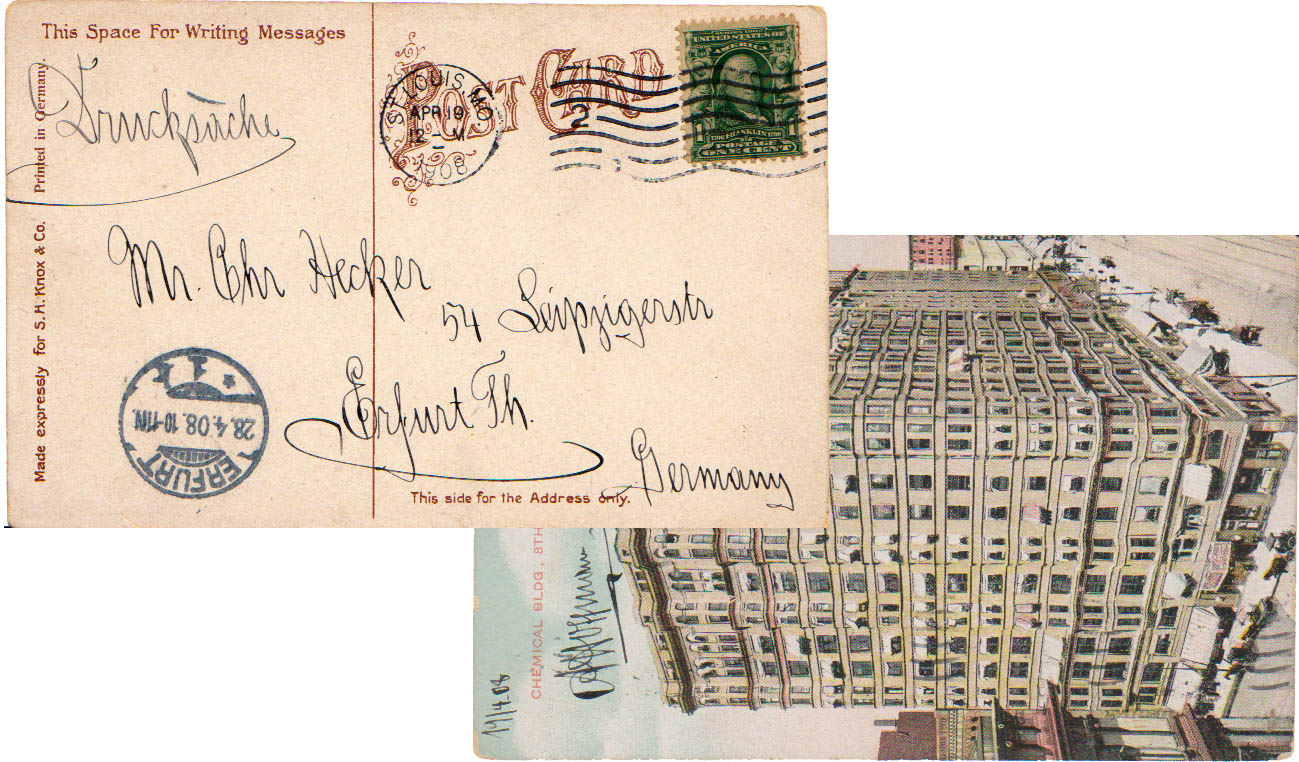 This Space For Writing Messages
Drucksache
Printed in Germany.
Made expressly for S.H. Knox & Co.
POST CARD
ST. LOUIS, MO.
APR 19
12 - M
1908
2
SERIES 1902
UNITED STATES OF
AMERICA
1 FRANKLIN 1
POSTAGE
ONE CENT
Mr. Chr Hecker
54 Leipzigerstr
Erfurt Th.
Germany
This side for the Address only.
ERFURT
28.4.08.10-11N.
1
CHEMICAL BLDG, 8TH
19/4.08